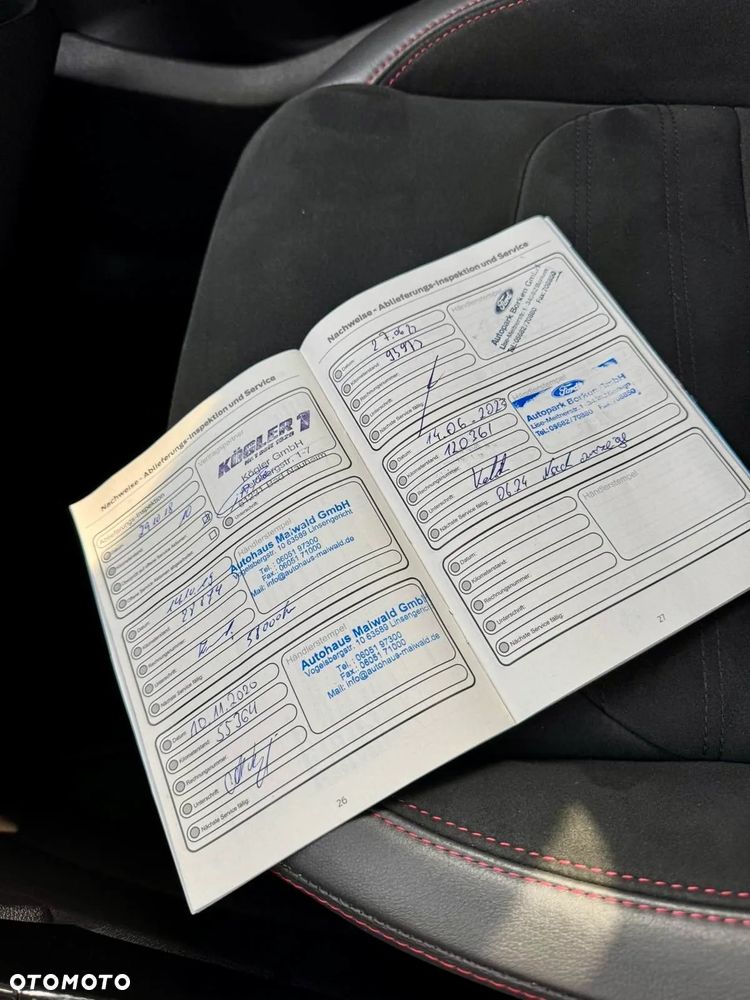 Nachweise - Ablieferungs-Inspektion und Service
Ablieferungs-Inspektion
Datum:
29.10.18
10
Unterschrift:
Vertragspartner
KÖGLER 1
Kögler GmbH
Bad Nauheim
Datum:
14.10.19
Kilometerstand:
27774
Rechnungsnummer:
Unterschrift:
Nächste Service fällig:
58000km
Händlerstempel
Autohaus Maiwald GmbH
Vogelsbergstr. 10 63589 Linsengericht
Tel.: 06051 97300
Fax.: 06051 71000
Mail: info@autohaus-maiwald.de
Datum:
10.11.2020
Kilometerstand:
55364
Rechnungsnummer:
Unterschrift:
Nächste Service fällig:
Händlerstempel
Autohaus Maiwald GmbH
Vogelsbergstr. 10 63589 Linsengericht
Tel.: 06051 97300
Fax.: 06051 71000
Mail: info@autohaus-maiwald.de
26
Nachweise - Ablieferungs-Inspektion und Service
Datum:
27.06.
Kilometerstand:
Rechnungsnummer:
Unterschrift:
Nächste Service fällig:
Händlerstempel
Ford
Autopark Borken GmbH
Datum:
14.06.2023
Kilometerstand:
120361
Rechnungsnummer:
Unterschrift:
Nächste Service fällig:
06.24 Nach anzeige
Händlerstempel
Ford
Autopark Borken GmbH
Datum:
Kilometerstand:
Rechnungsnummer:
Unterschrift:
Nächste Service fällig:
Händlerstempel
27
OTOMOTO